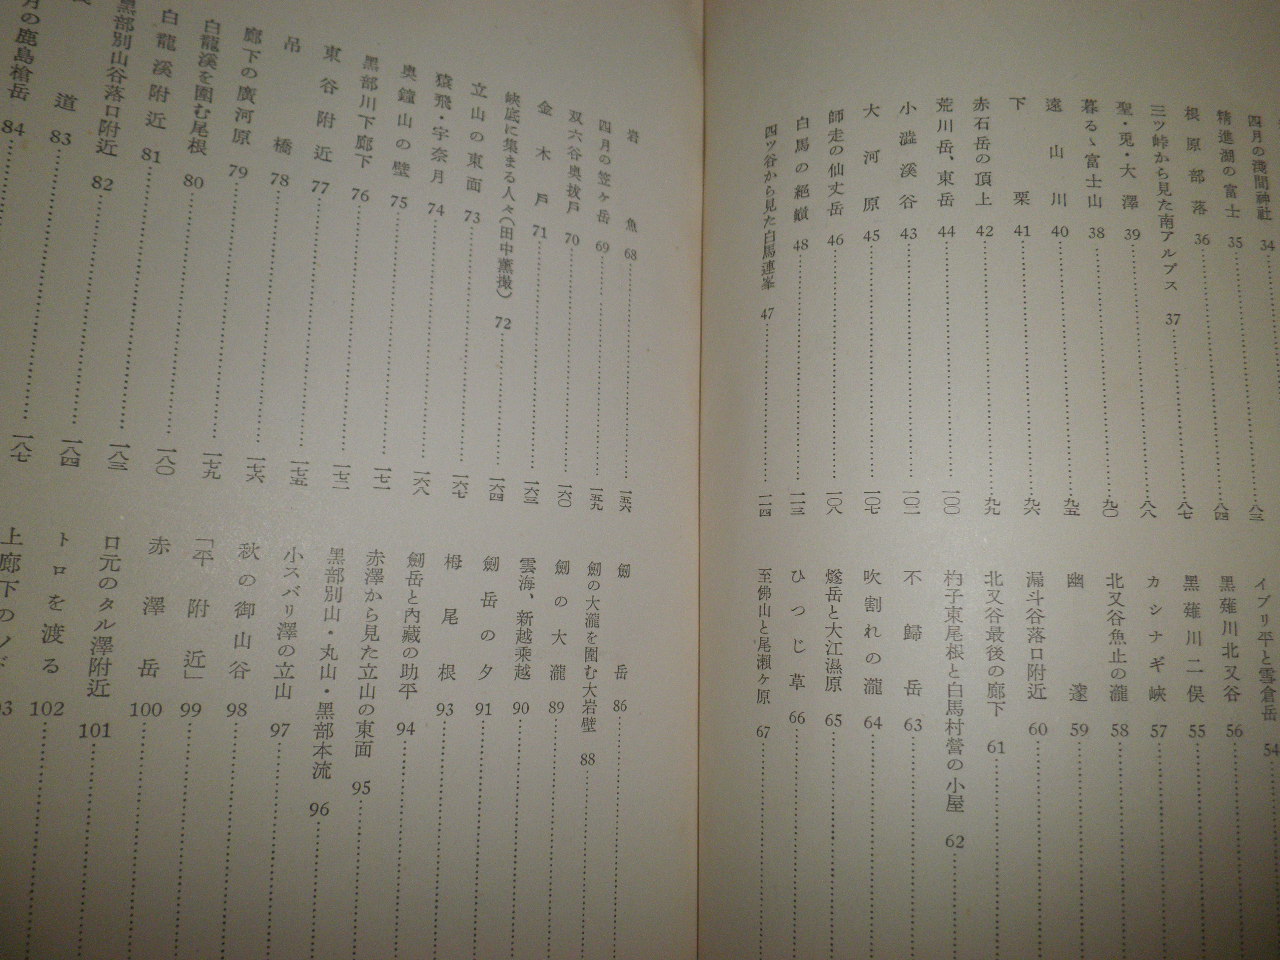 四月の淺間神社 34 八三
精進湖の富士 35 八四
根原部落 36 八七
三ツ峠から見た南アルプス 37 八八
聖・兎・大澤 39 九〇
暮るゝ富士山 38 九五
遠山川 40 九六
下栗 41 九九
赤石岳の頂上 42
荒川岳、東岳 44 一〇〇
小澁溪谷 43 一〇二
大河原 45 一〇七
師走の仙丈岳 46 一〇八
白馬の絶巓 48 一一三
四ツ谷から見た白馬連峯 47 一一四
イブリ平と雪倉岳 54
黑薙川北又谷 56
黑薙川二俣 55
カシナギ峽 57
北又谷魚止の瀧 58
幽邃 59
漏斗谷落口附近 60
北又谷最後の廊下 61
杓子東尾根と白馬村營の小屋 62
不歸岳 63
吹割れの瀧 64
燧岳と大江濕原 65
ひつじ草 66
至佛山と尾瀬ヶ原 67
岩魚 68 一五六
四月の笠ヶ岳 69 一五九
双六谷奥抜戸 70 一六〇
金木戸 71 一六三
峽底に集まる人々(田中薫撮) 72 一六四
立山の東面 73 一六七
猿飛・宇奈月 74 一六八
奥鐘山の壁 75 一七一
黑部川下廊下 76 一七二
東谷附近 77 一七五
吊橋 78 一七六
廊下の廣河原 79 一七九
白龍溪を圍む尾根 80 一八〇
白龍溪附近 81 一八三
黑部別山谷落口附近 82 一八四
道 83 一八七
月の鹿島槍岳 84
劔岳 86
劔の大瀧を圍む大岩壁 88
劔の大瀧 89
雲海、新越乘越 90
劔岳の夕 91
栂尾根 93
劔岳と内藏の助平 94
赤澤から見た立山の東面 95
黑部別山・丸山・黑部本流 96
小スバリ澤の立山 97
秋の御山谷 98
「平附近」 99
赤澤岳 100
口元のタル澤附近 101
トロを渡る 102
上廊下のノド 03